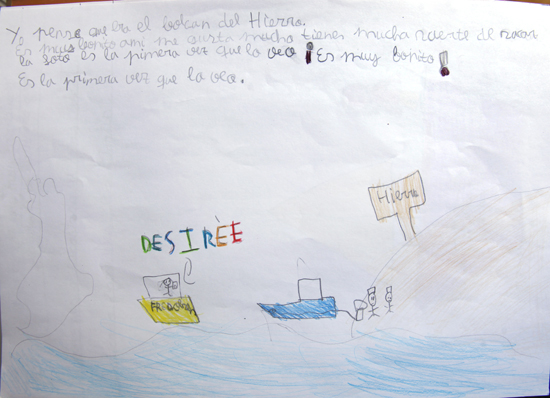 Yo pense que era el bolcan del Hierro.
Es muy bonito ami me gusta mucho tienes mucha suerte de
la foto es la pimera vez que lo veo ¡Es muy bonito!
Es la primera vez que lo veo.
Hierro
DESIRÈE